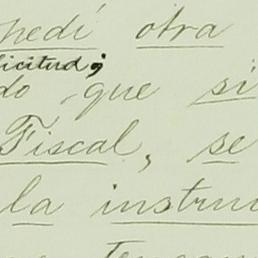 pedí otra
licitud;
do que si
Fiscal, se
la instru